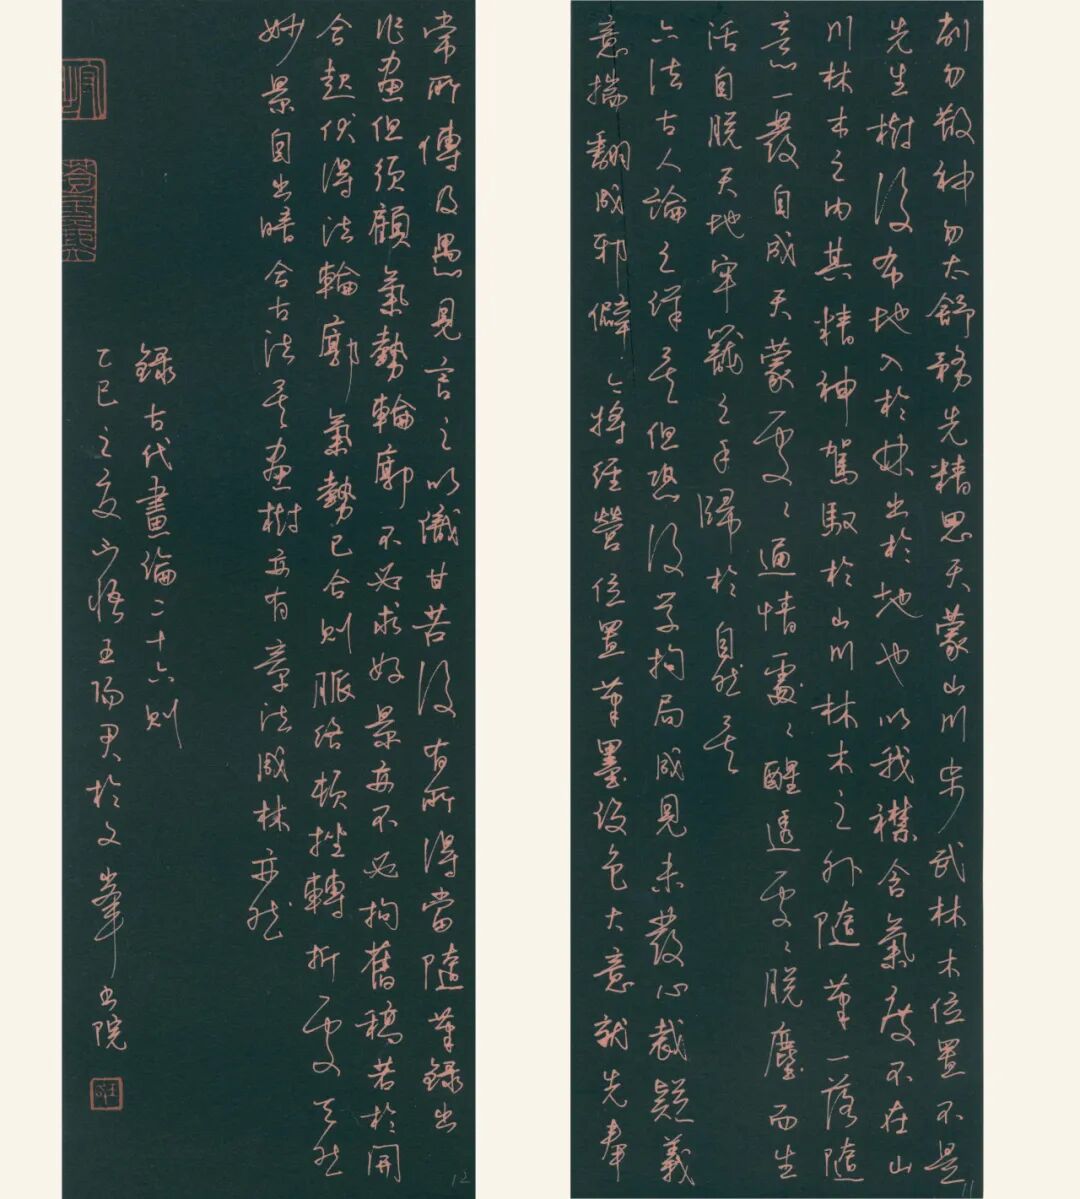 削勿散神勿太舒務先精思天蒙山川步武林木位置不是
先生樹後布地入於林出於地也以我襟含氣度不在山
川林木之內其精神駕馭於山川林木之外隨筆一落隨
意一發自成天蒙處〻通情處〻醒透處〻脫塵而生
活自脫天地牢籠之手歸於自然矣
六法古人論之詳矣但恐後學拘局成見未發心裁疑義
意揣翻成邪僻今將經營位置筆墨設色大意就先奉
11
常所傳及愚見言之以識甘苦後有所得當隨筆錄出
作畫但須顧氣勢輪廓不必求好景亦不必拘舊稿若於開
合起伏得法輪廓氣勢已合則脈絡頓挫轉折處天然
妙景自出暗合古法矣畫樹亦有章法成林亦然
錄古代畫論二十六則
乙巳之夏山悟王陽君於文峯書院
12